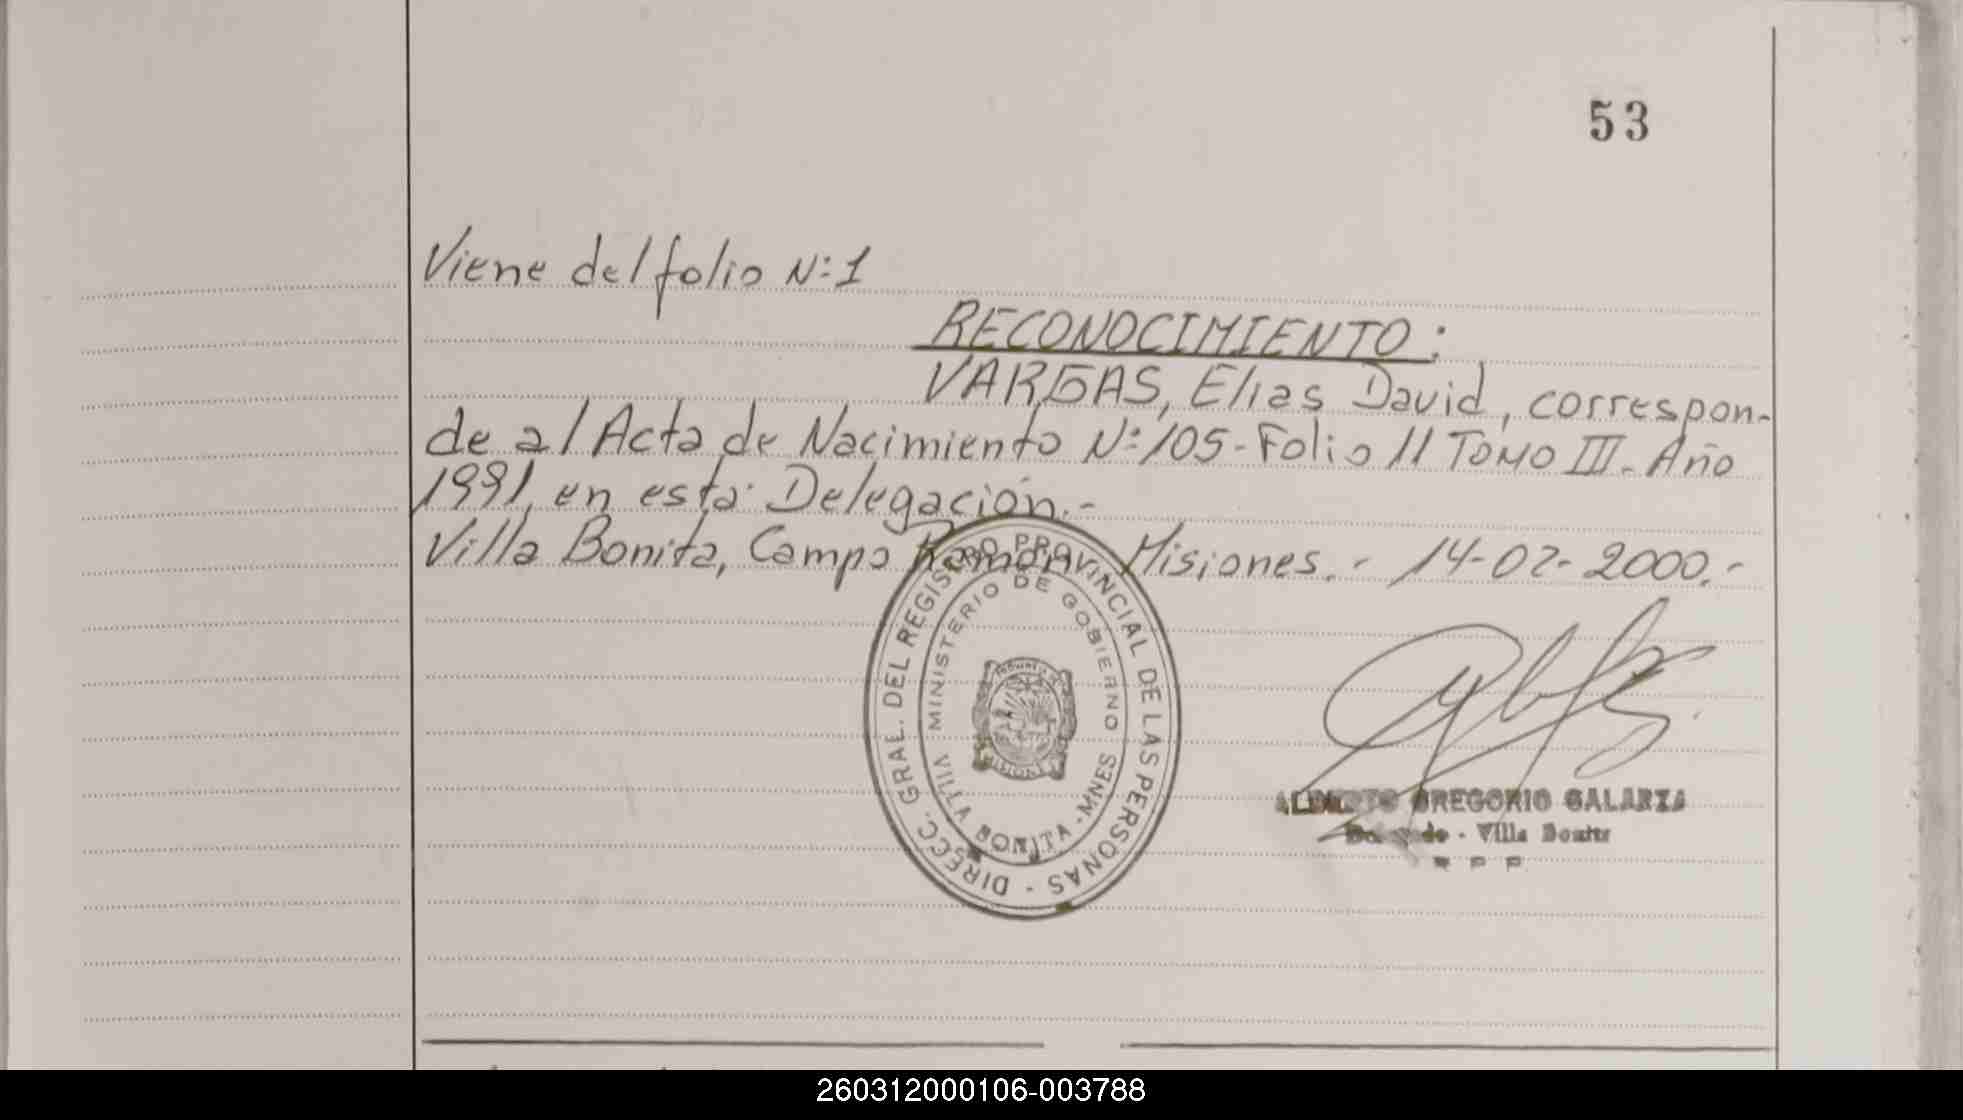 53
Viene del folio N:1
RECONOCIMIENTO:
VARGAS, Elias David, correspon-
de al Acta de Nacimiento N:105-Folio 11 TOMO III. Año
1991, en esta Delegación.-
Villa Bonita, Campo Ramón, Misiones.- 14-02-2000.-
DIRECC. GRAL. DEL REGISTRO PROVINCIAL DE LAS PERSONAS -
MINISTERIO DE GOBIERNO
VILLA BONITA - MNES
MISIONES
ALBERTO GREGORIO GALARZA
Delegado - Villa Bonita
260312000106-003788